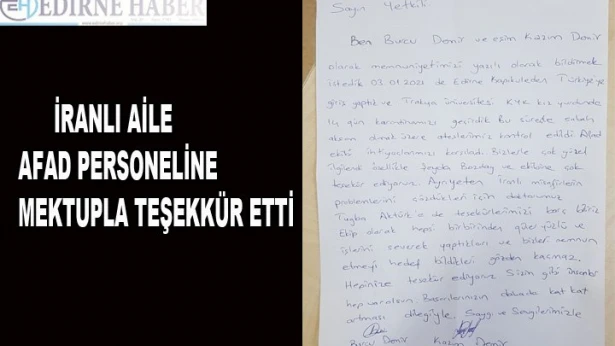 EDİRNE HABER
İRANLI AİLE
AFAD PERSONELİNE
MEKTUPLA TEŞEKKÜR ETTİ
Sayın Yetkili
Ben Burcu Demir ve eşim Kazım Demir
olarak memnuniyetimizi yazılı olarak bildirmek
istedik 03.01.2021 de Edirne Kapıkuleden Türkiyeye
giriş yaptık ve Trakya üniversitesi KYK kız yurdunda
14 gün karantinamızı geçirdik Bu sürede sabah
akşam olmak üzere ateşlerimiz kontrol edildi Afad
ekibi ihtiyaçlarımızı karşıladı Bizlerle çok güzel
ilgilendi özellikle Bozdağ ve ekibine çok
teşekür ediyoruz Ayrıyeten iranlı misafirlerin
problemlerini çözdükleri için
Tuğba Aktürk e de teşekürlerimizi borç biliriz
Ekip olarak hepsi birbirinden güler yüzlü ve
işlerini severek yaptıkları ve bizleri memnun
etmeyi hedef bildikleri gözden kaçmaz.
Hepinize teşekür ediyoruz Sizin gibi insanlar
hep varolsun. Başarılarınızın dahada kat kat
artması dileğiyle. Saygı ve Sevgilerimizle
Burcu Demir Kazım Demir